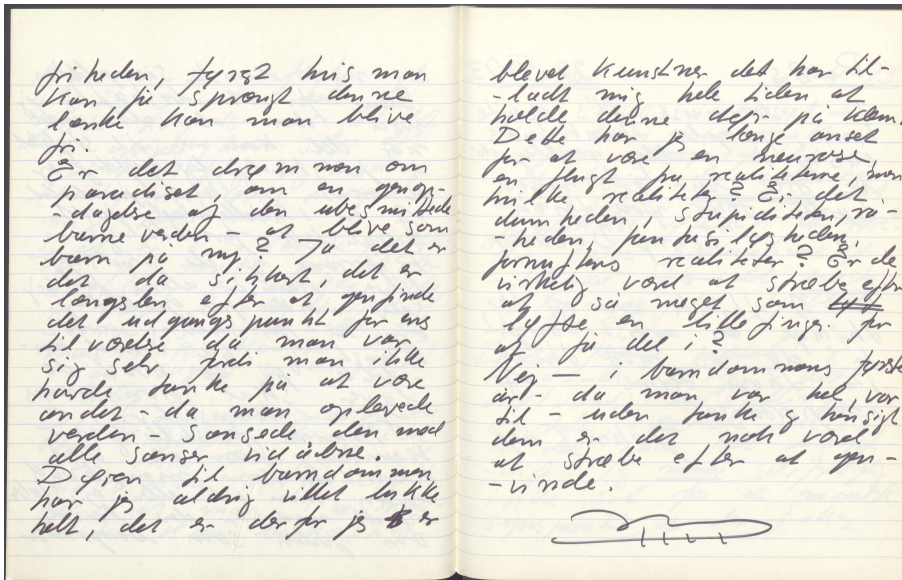 friheden, tyngt hvis man
kan få sprængt denne
lænke kan man blive
fri.
Er det drømmen om
paradiset, om en genop-
-dagelse af den ubesmittede
barneverden - at blive som
barn på ny? Ja det er
det da sikkert, det er
længslen efter at genfinde
det udgangspunkt for ens
tilværelse da man var
sig selv fordi man ikke
havde tanke på at være
andet - da man oplevede
verden - sansede den med
alle sanser vidåbne.
Døren til barndommen
har jeg aldrig villet lukke
helt, det er derfor jeg er
blevet kunstner det har til-
-ladt mig hele tiden at
holde denne dør på klem.
Dette har jeg længe anset
for at være en neurose,
en flugt fra realiteterne, men
hvilke realiteter? Er det
dumheden, stupiditeten, rå-
-heden, fantasiløsheden,
fornuftens realiteter? Er de
virkelig værd at stræbe efter
at så meget som
løfte en lillefinger for
at få del i?
Nej - i barndommens første
år - da man var hel, var
til - uden tanke og hensigt
dem er det nok værd
at stræbe efter at gen-
-vinde.